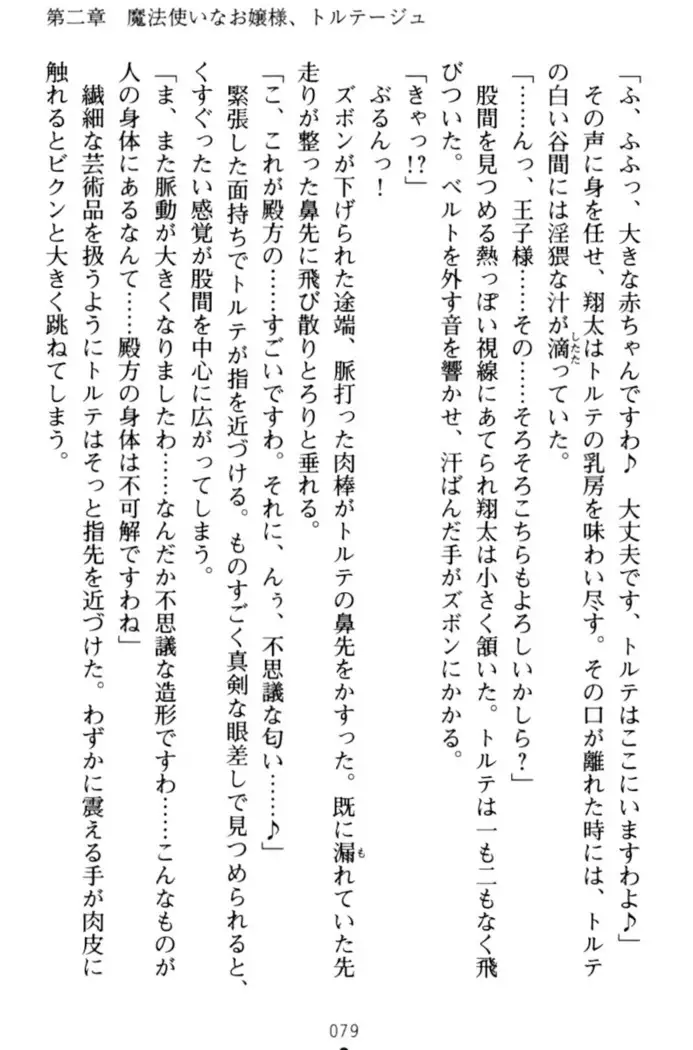 第二章　魔法使いなお嬢様、トルテージュ
「ふ、ふふっ、大きな赤ちゃんですわ♪　大丈夫です、トルテはここにいますわよ♪」
その声に身を任せ、翔太はトルテの乳房を味わい尽す。その口が離れた時には、トルテ
の白い谷間には淫猥な汁が滴っていた。
「……んっ、王子様……その……そろそろこちらもよろしいかしら？」
股間を見つめる熱っぽい視線にあてられ翔太は小さく頷いた。トルテは一も二もなく飛
びついた。ベルトを外す音を響かせ、汗ばんだ手がズボンにかかる。
「きゃっ!?」
ぶるんっ！
ズボンが下げられた途端、脈打った肉棒がトルテの鼻先をかすった。既に漏れていた先
走りが整った鼻先に飛び散りとろりと垂れる。
「こ、これが殿方の……すごいですわ。それに、んぅ、不思議な匂い……♪」
緊張した面持ちでトルテが指を近づける。ものすごく真剣な眼差しで見つめられると、
くすぐったい感覚が股間を中心に広がってしまう。
「ま、また脈動が大きくなりましたわ……なんだか不思議な造形ですわ……こんなものが
人の身体にあるなんて……殿方の身体は不可解ですわね」
繊細な芸術品を扱うようにトルテはそっと指先を近づけた。わずかに震える手が肉皮に
触れるとビクンと大きく跳ねてしまう。
079